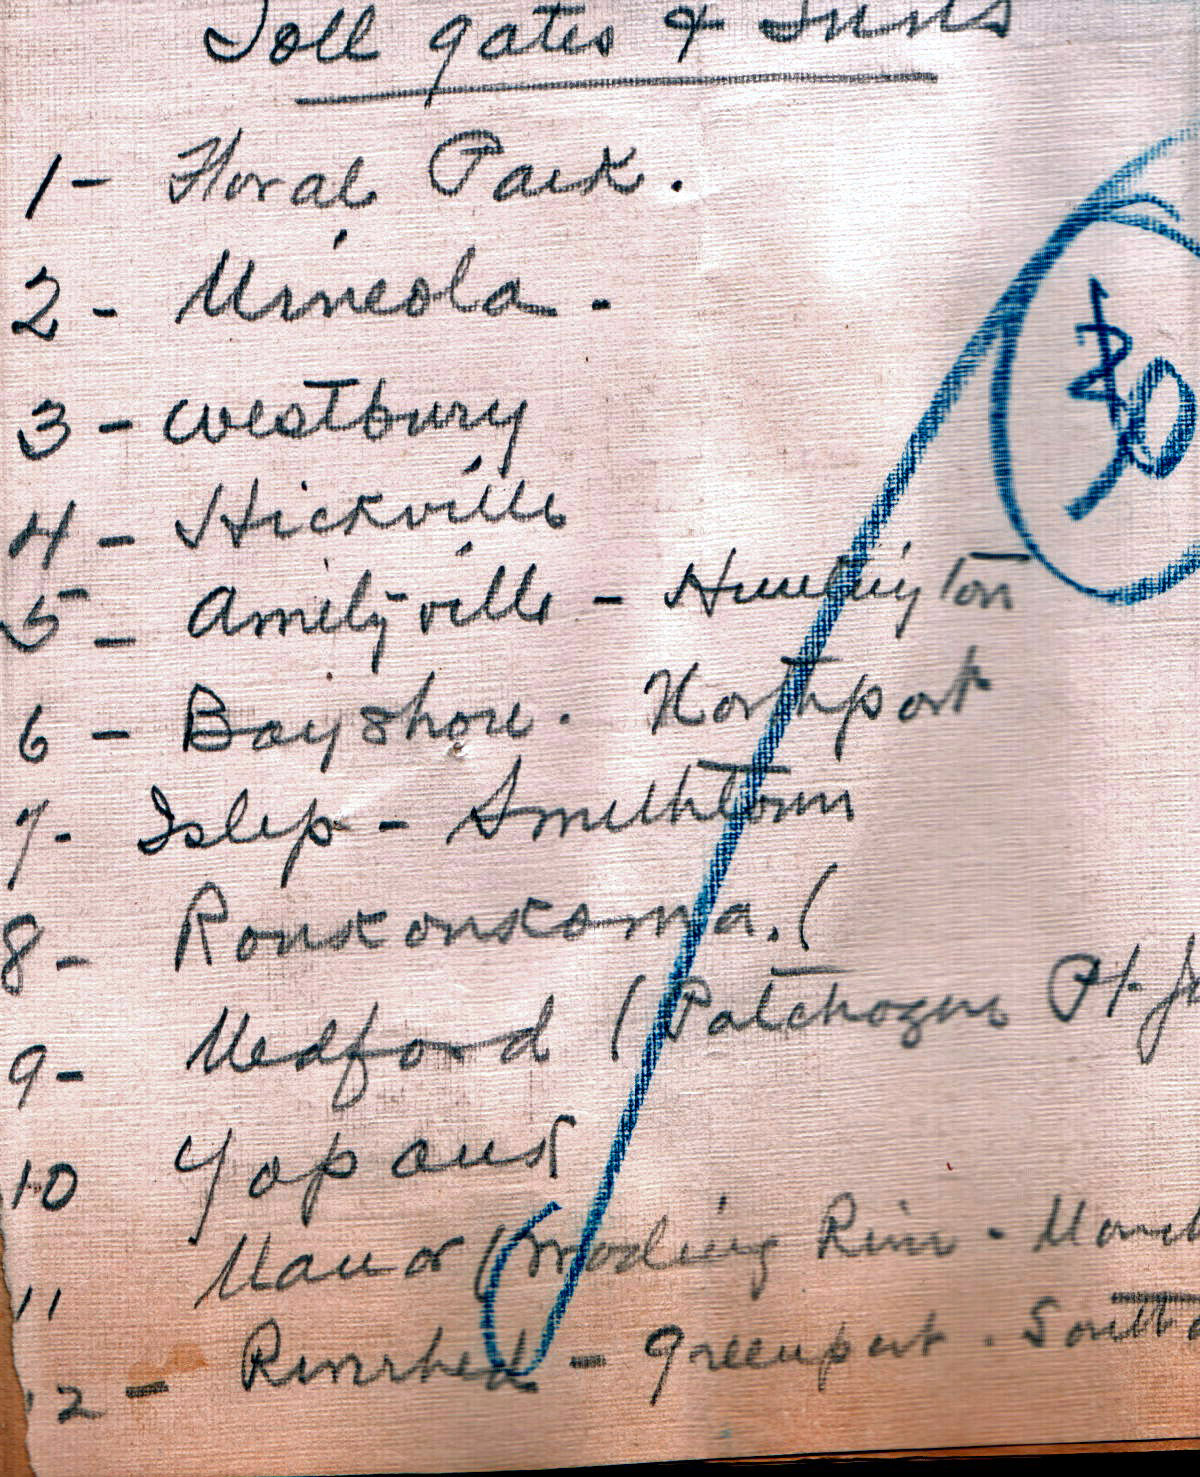 Toll gates & Inns
1 - Floral Park.
2 - Mineola -
3 - Westbury
4 - Hickville
5 - Amityville - Huntington
6 - Bayshore. Northport
7 - Islep - Smithtown
8 - Ronkonkoma. (
9 - Medford ( Patchogue Pt. J
10 Yapank
11 Manor ( Wading River - Morich
12 - Riverhead - Greenport. South
20